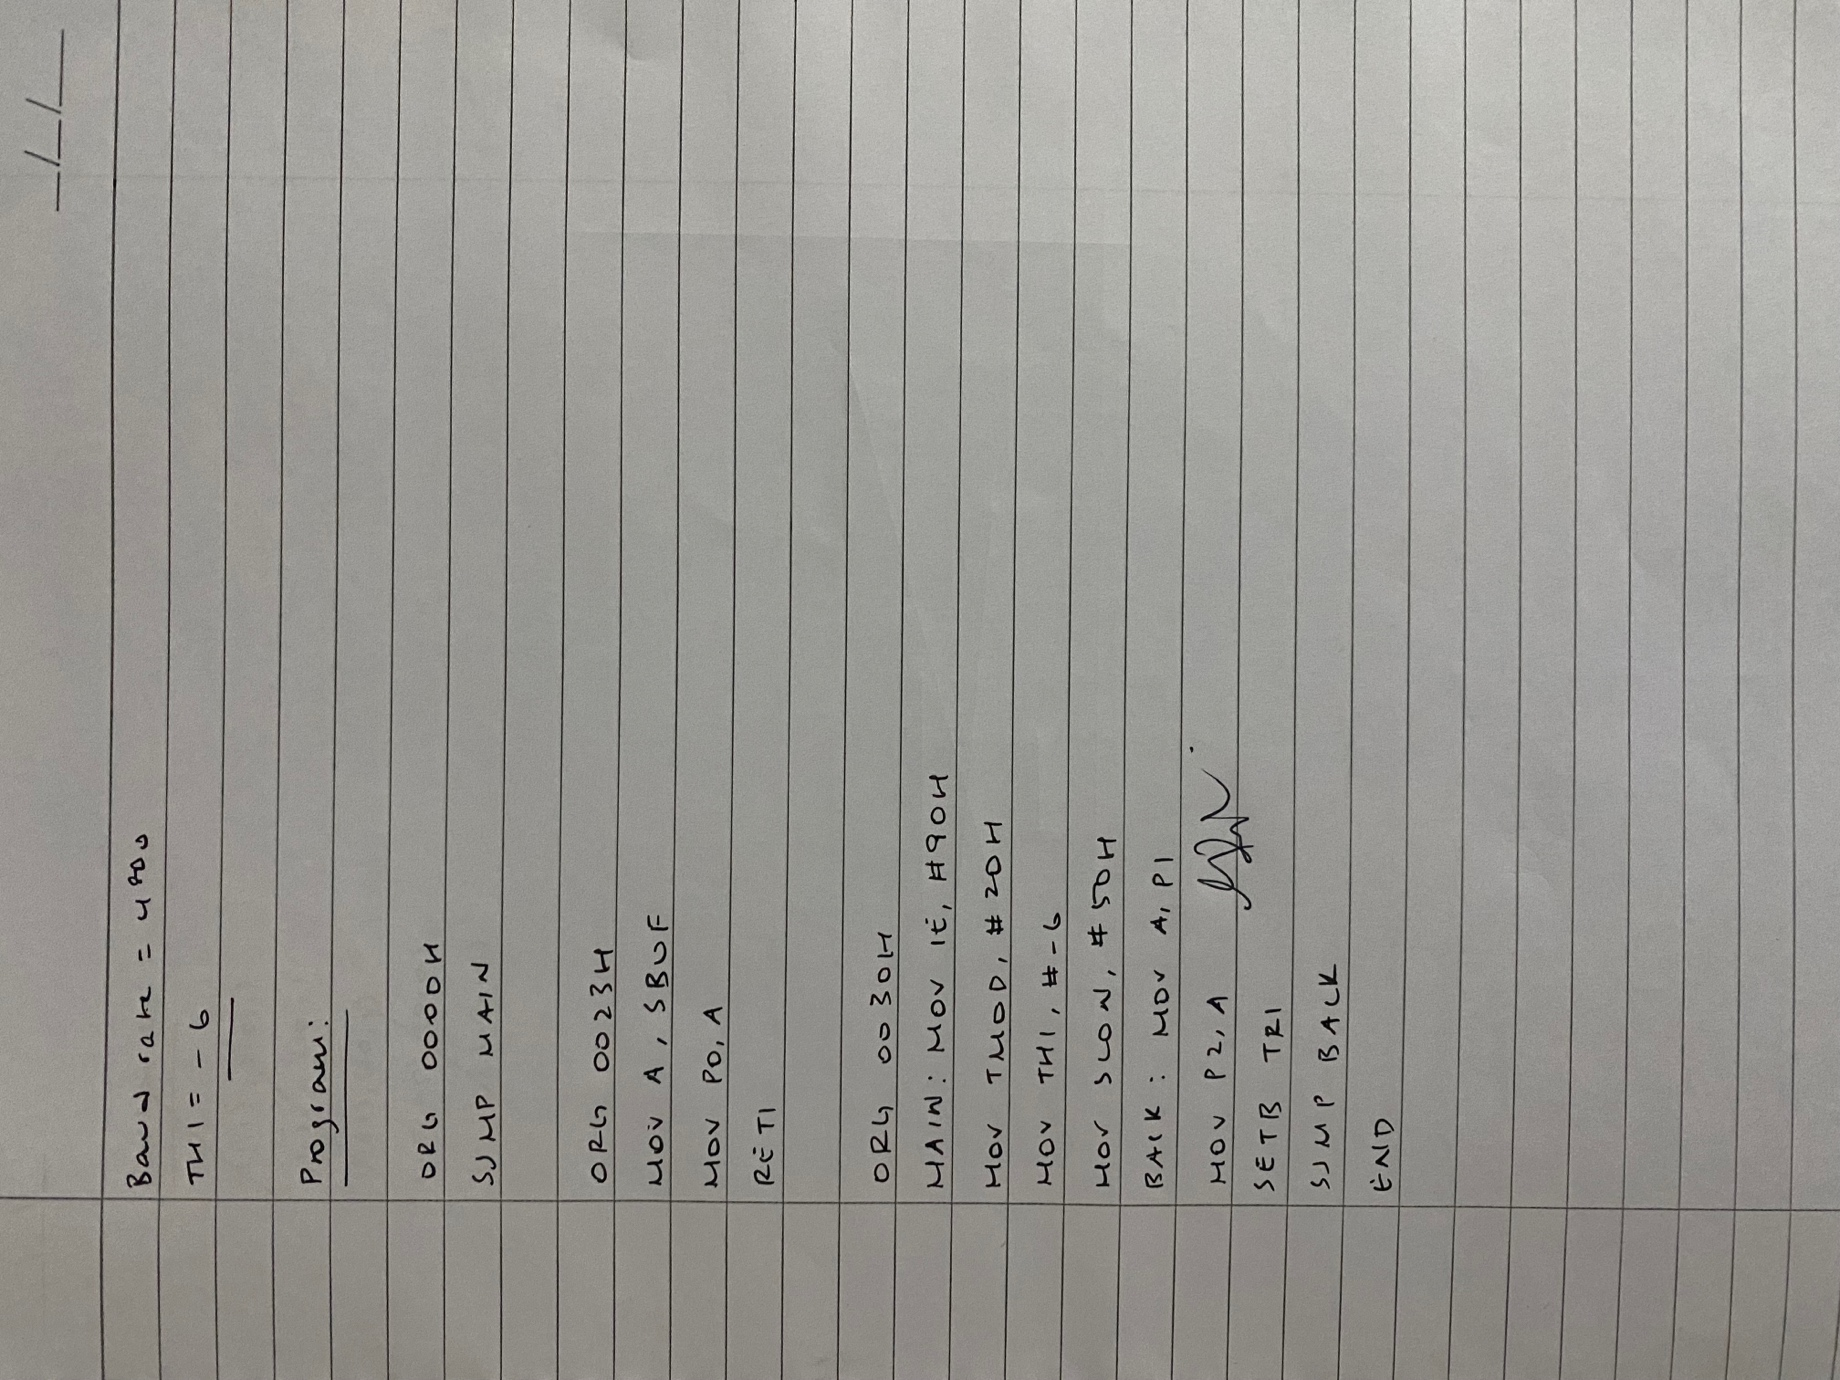 Baud rate = 4800
TH1 = -6
Program:
ORG 0000H
SJMP MAIN
ORG 0023H
MOV A, SBUF
MOV P0, A
RETI
ORG 0030H
MAIN: MOV IE, #90H
MOV TMOD, #20H
MOV TH1, #-6
MOV SCON, #50H
BACK: MOV A, P1
MOV P2, A
SETB TR1
SJMP BACK
END